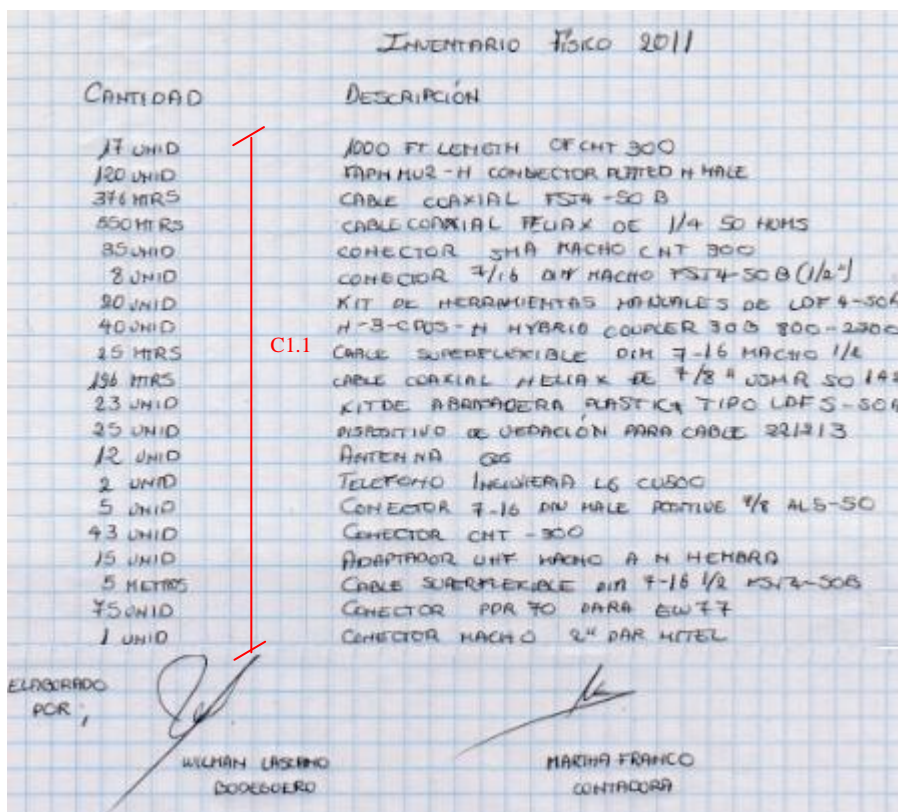 INVENTARIO FÍSICO 2011
CANTIDAD DESCRIPCIÓN
17 UNID 1000 FT LENGTH OF CNT 300
120 UNID CONNECTOR PLATED N MALE
376 MTRS CABLE COAXIAL FST4-50 B
550 MTRS CABLE COAXIAL DE 1/4 50 HOMS
35 UNID CONECTOR SMA MACHO CNT 300
8 UNID CONECTOR 7/16 DIN MACHO FST4-50B (1/2")
20 UNID KIT DE HERRAMIENTAS MANUALES DE LDF4-50A
40 UNID N-3-CPUS-N HYBRID COUPLER 30B 800-2300
25 MTRS CABLE SUPERFLEXIBLE DIM 7-16 MACHO 1/2
196 MTRS CABLE COAXIAL HELIAX DE 7/8" 50
23 UNID KIT DE ABRAZADERA PLASTICA TIPO LDF5-50A
25 UNID DISPOSITIVO DE VEDACIÓN PARA CABLE 221213
C1.1
12 UNID ANTENNA
2 UNID TELEFONO LG CU500
5 UNID CONECTOR 7-16 DIN MALE POSITIVE 7/8 AL5-50
43 UNID CONECTOR CNT-300
15 UNID ADAPTADOR UHF MACHO A N HEMBRA
5 METROS CABLE SUPERFLEXIBLE DIM 7-16 1/2
75 UNID CONECTOR PDR 70 PARA EW77
1 UNID CONECTOR MACHO 2" PAR MITEL
ELABORADO
POR;
WILMAN LASCANO MARTHA FRANCO
BODEGUERO CONTADORA